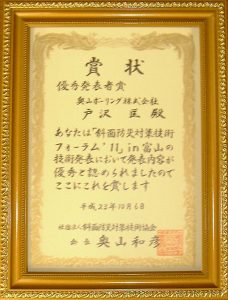 賞状
優秀発表者賞
奥山ボーリング株式会社
戸沢 匡 殿
あなたは「斜面防災対策技術
フォーラム'11」in富山の
技術発表において発表内容が
優秀と認められましたので
ここにこれを賞します
平成23年10月6日
社団法人斜面防災対策技術協会
会長 奥山和彦